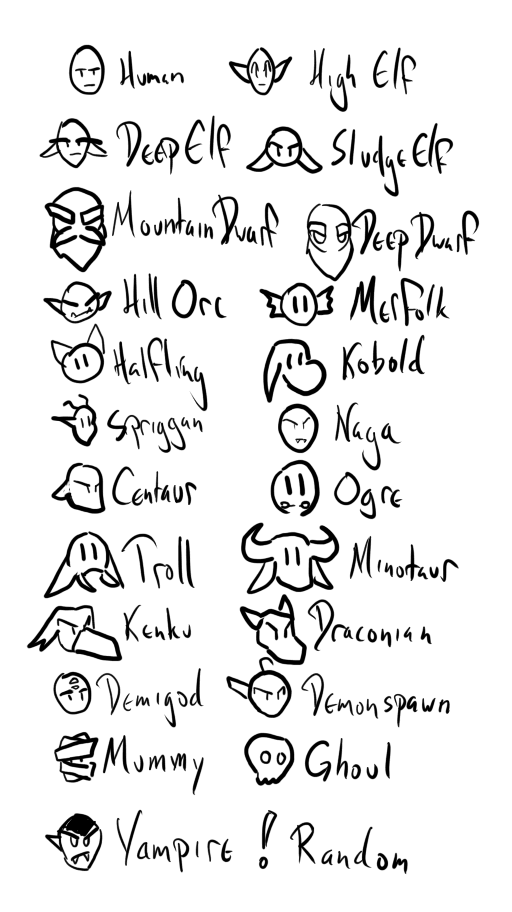 Human High Elf
Deep Elf Sludge Elf
Mountain Dwarf Deep Dwarf
Hill Orc Merfolk
Halfling Kobold
Spriggan Naga
Centaur Ogre
Troll Minotaur
Kenku Draconian
Demigod Demonspawn
Mummy Ghoul
Vampire ! Random